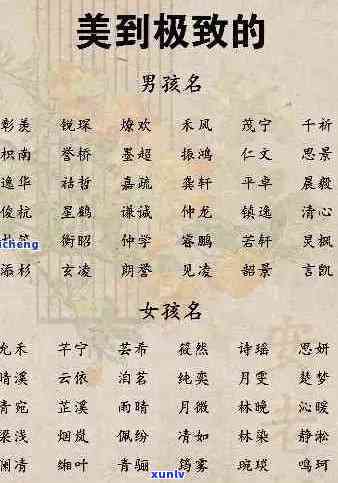 美到极致的
男孩名
彰羡 锐琛 燎欢 禾风 茂宁 千祈
枳南 誉桥 墨超 振鸿 仁文 思景
逸华 祜哲 嘉疏 龚轩 平卓 晨毅
俊杭 星鹤 谦诚 仲龙 镇逸 清心
icheng 衡昭 仲学 睿鹏 若轩 灵枫
添杉 玄凌 朗誉 见凌 韶景 言凯
女孩名
允禾 芊宁 芸希 筱然 诗瑶 思妍
晴溪 云依 泊茗 纯奕 月雯 楚梦
青宛 芷溪 雨晴 月微 林晚 沁暖
梁浅 烟岚 佩纷 清如 林染 静淞
阑清 缃叶 青骊 筠雾 琬琰 鸣珂
xunlv